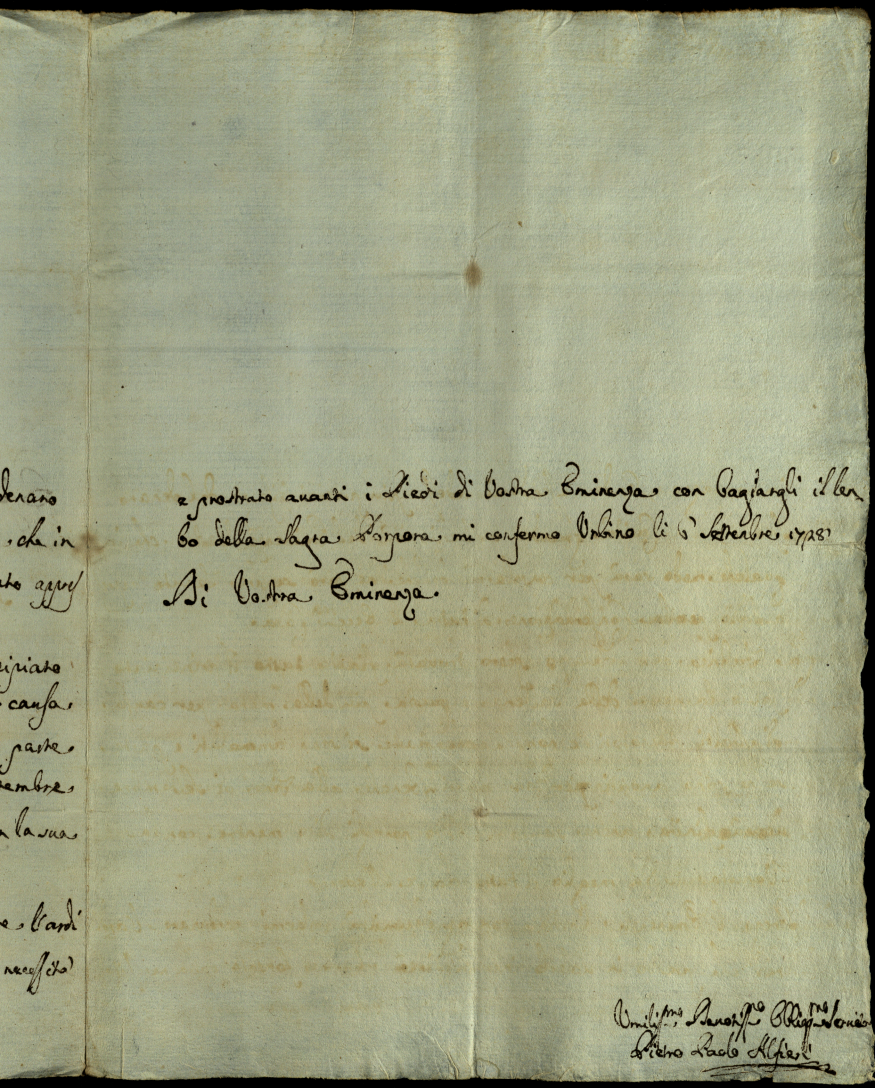 denaro
che in
ato appres
cipiato
causa
parte
tembre
la sua
e l'ardi
necessità
e prostrato avanti i Piedi di Vostra Eminenza con bagiargli il lem
bo della Sagra Porpora mi confermo Urbino li 6 Settembre 1728
Di Vostra Eminenza
Umiliss.mo Devotiss.mo Obligg.mo Servito
Pietro Paolo Alfieri